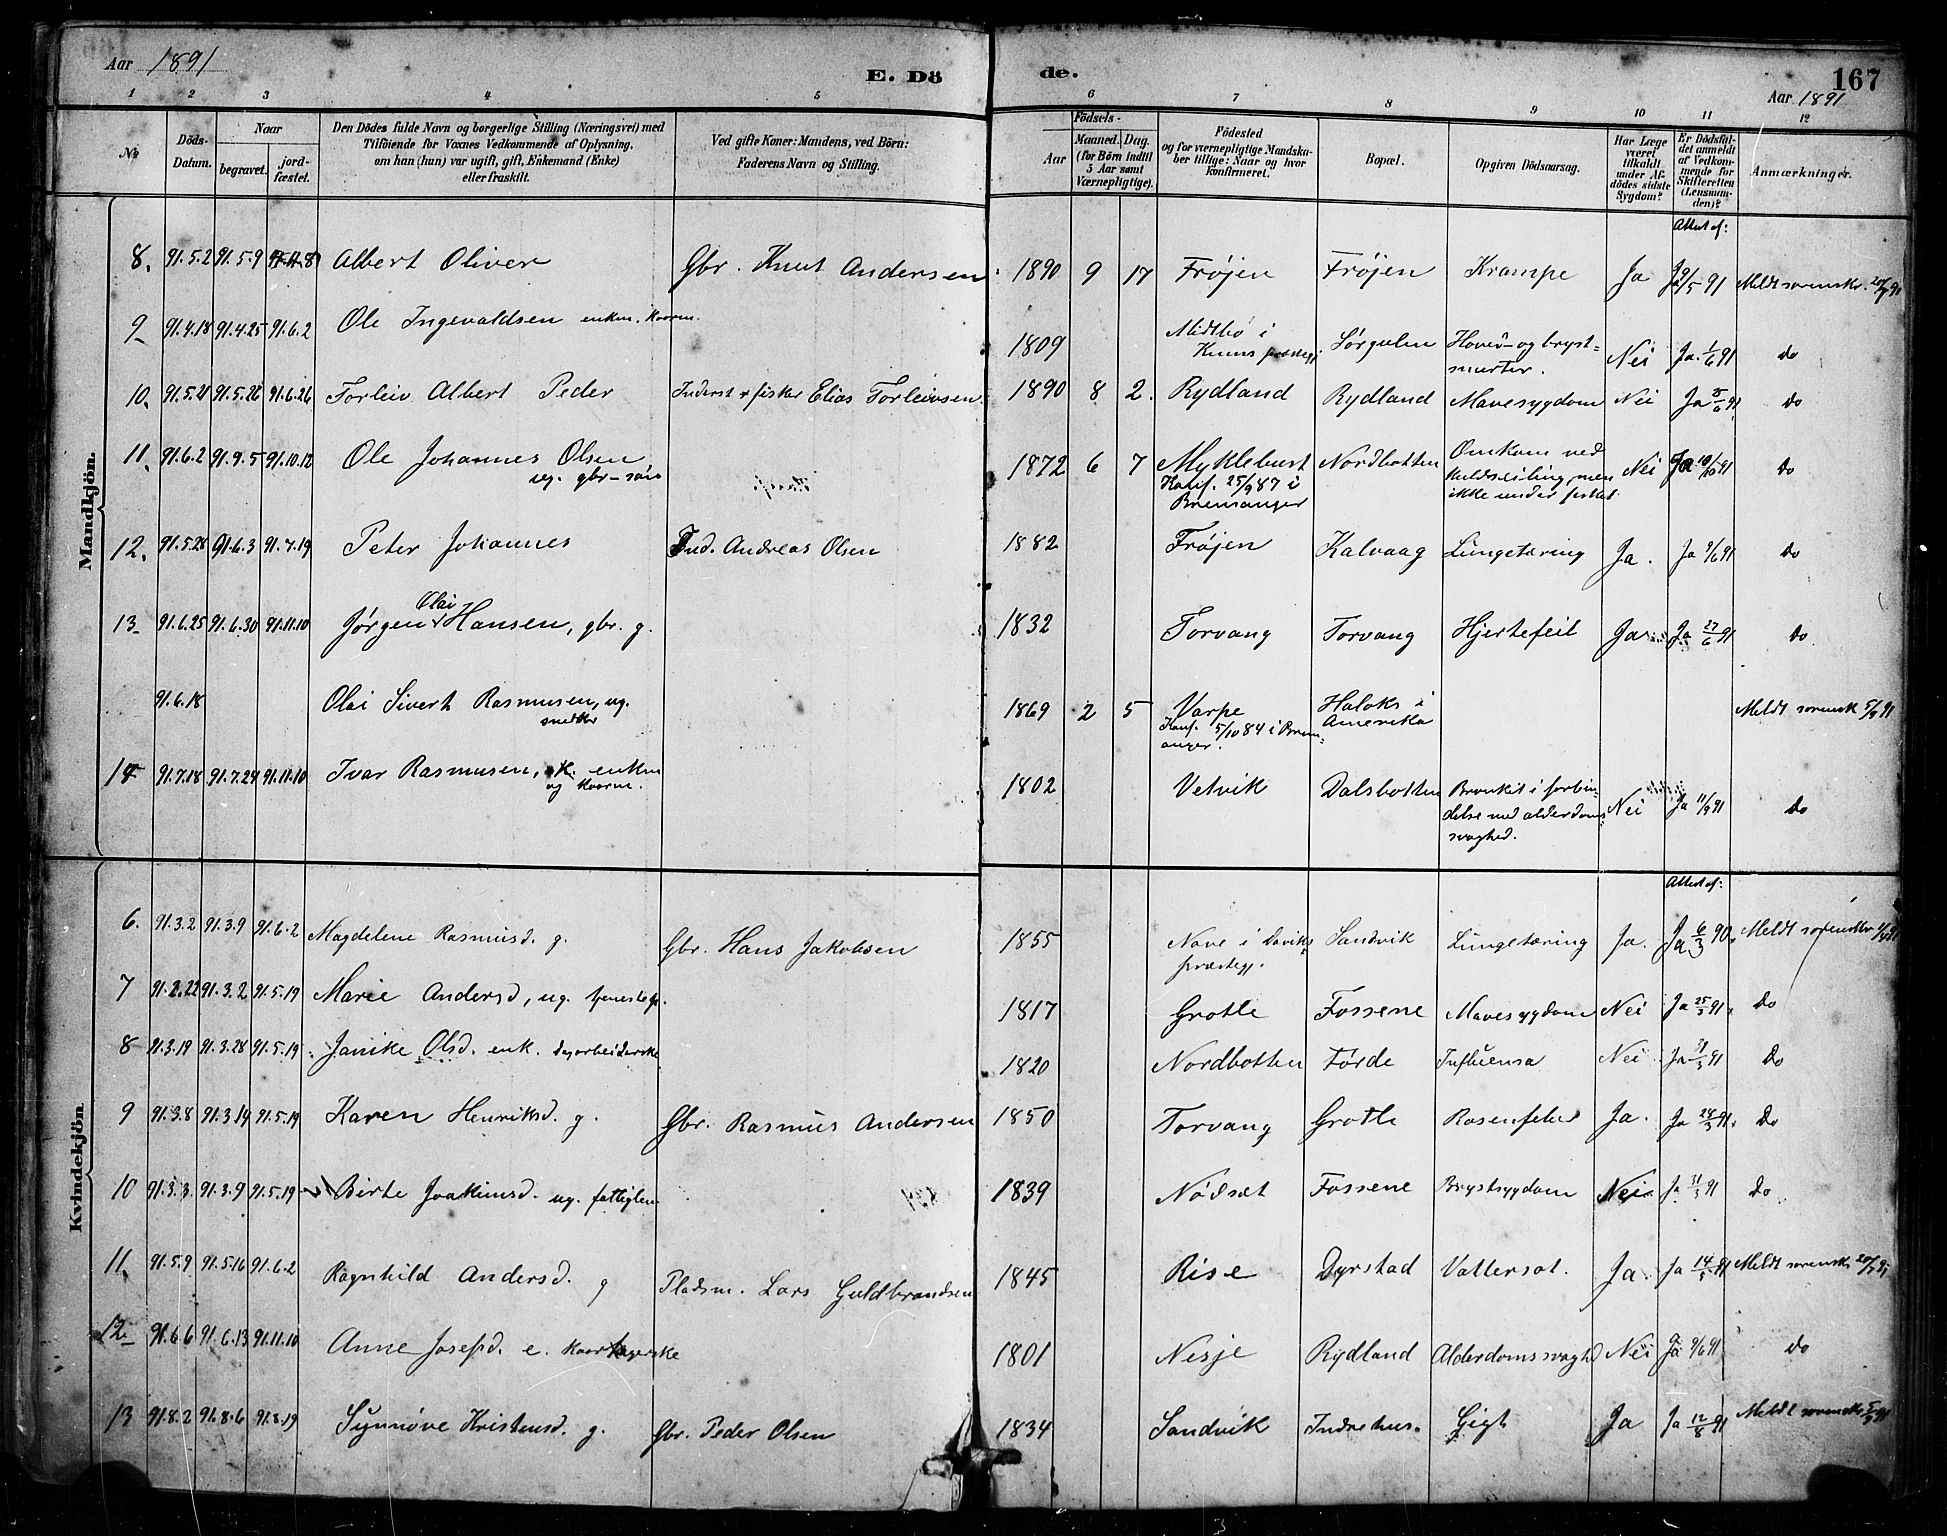 Aar 1891
E. Dö
de.
167
Aar 1891
1 2 3 4 5 6 7 8 9 10 11 12
№
Döds-Datum.
Naar
begravet.
jord-fæstet.
Den Dödes fulde Navn og borgerlige Stilling (Næringsvei) med
Tilföiende for Voxnes Vedkommende af Oplysning,
om han (hun) var ugift, gift, Enkemand (Enke)
eller fraskilt.
Ved gifte Koner: Mandens, ved Börn:
Faderens Navn og Stilling.
Födsels-
Aar
Maaned. Dag.
(for Börn indtil
5 Aar samt
Værnepligtige).
Födested
og for værnepligtige Mandska-
ber tillige: Naar og hvor
konfirmeret.
Bopæl.
Opgiven Dödsaarsag.
Har Læge
været
tilkaldt
under Af-
dödes sidste
Sygdom?
Er Dödsfal-
det anmeldt
af Vedkom-
mende for
Skifteretten
(Lensman-
den)?
Anmærkninger.
Mandkjön.
Attest af:
8. 91.5.2 91.5.9 Albert Oliver Gbr. Knut Andersen 1890 9 17 Frøjen Frøjen Krampe Ja Ja 9/5 91 Meldt sorenskr.
9 91.4.18 91.4.25 91.6.2 Ole Ingevaldsen enkm. kaarm. 1809 Midtbø i Kinns præstegj. Sørgulen Hoved- og bryst-smerter. Nei Ja 1/6 91 do
10. 91.5.21 91.5.26 91.6.26 Torleiv Albert Peder Inderst & fisker Elias Torleivsen 1890 8 2. Rydland Rydland Mavesygdom Nei Ja 91 do
11. 91.6.2 91.9.5 91.10.12 Ole Johannes Olsen ug. gbr-søn 1872 6 7 Myklebust Konf. 25/9 87 i Bremanger Nordbotten Omkom ved kuldseiling, men ikke under fisket. Nei Ja 91 do
12. 91.5.28 91.6.3 91.7.19 Peter Johannes Ind. Andreas Olsen 1882 Frøjen Kalvaag Lungetæring Ja. Ja 9/6 91 do
13 91.6.25 91.6.30 91.11.10 Jørgen Olai Hansen, gbr. g. 1832 Torvang Torvang Hjertefeil Ja Ja 27/6 91 do
91.6.18 Olai Sivert Rasmusen, ug. snedker 1869 2 5 Varpe Konf. 5/10 84 i Bremanger. i Amerika Meldt sorensk
14 91.7.18 91.7.24 91.11.10 Ivar Rasmusen, enkm og kaarm. 1802 Vetvik Dalsbotten Bronkit i forbindelse med alderdomssvaghed. Nei Ja 11/9 91 do
Kvindekjön.
Attest af:
6. 91.3.2 91.3.9 91.6.2 Magdelene Rasmusd. g. Gbr. Hans Jakobsen 1855 Nave i Daviks præstegj. Sandvik Lungetæring Ja. Ja 6/3 90. Meldt sorenskr
7 91.2.22 91.3.2 91.5.19 Marie Andersd, ug. 1817 Grotle Fossene Mavesygdom Nei Ja 25/3 91. Do
8 91.3.19 91.3.28 91.5.19 Janike Olsd. enk. dagarbeiderske 1820 Nordbotten Førde Influensa Nei Ja 31/3 91 Do
9 91.3.8 91.3.14 91.5.19 Karen Henriksd. g. Gbr. Rasmus Andersen 1850 Torvang Grotle Rosenfeber Ja. Ja 28/3 91. Do
10 91.3.3 91.3.9 91.5.19 Birte Joakimsd. ug. fattiglem 1839 Nødset Fossene Brystsygdom Nei Ja 31/3 91 Do
11. 91.5.9 91.5.16 91.6.2 Ragnhild Andersd. g Pladsm. Lars Guldbrandsen 1845 Rise Dyrstad Vattersot. Ja Ja 14/5 91 Meldt sorensk.
12 91.6.6 91.6.13 91.11.10 Anne Josefsd. e. kaartagerske 1801 Nesje Rydland Alderdomssvaghd Nei Ja 9/6 91 do
13 91.8.2 91.8.6 91.8.19 Synnøve Kristensd. g. Gbr. Peder Olsen 1834 Sandvik Indrehus. Gigt Ja Ja 12/8 91 Meldt sorensk